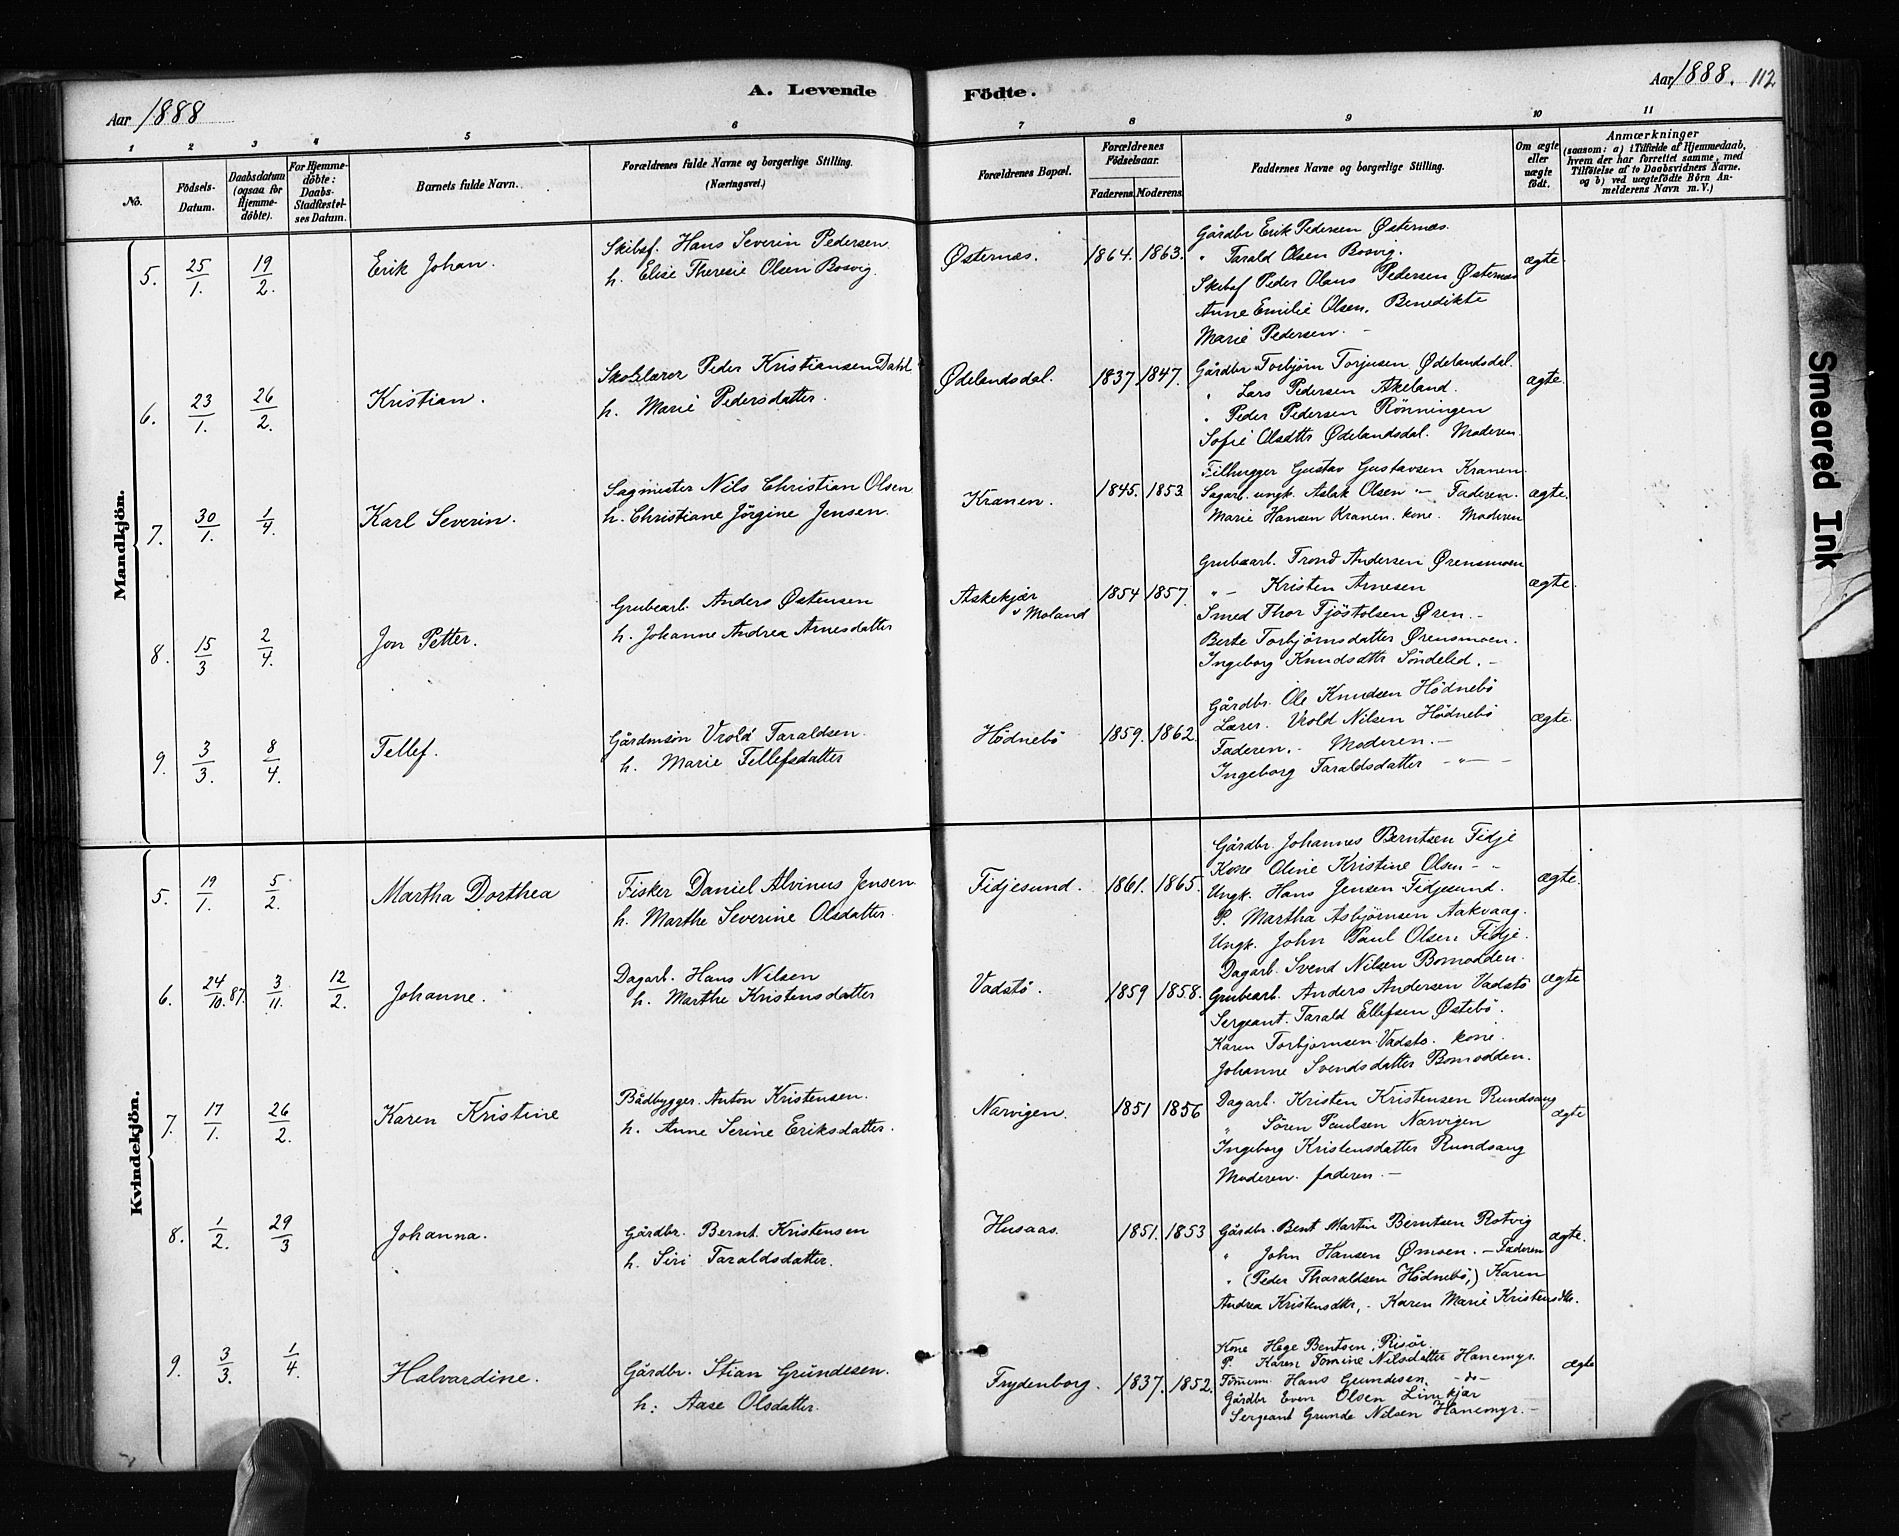 Aar 1888
A. Levende
Födte.
Aar 1888. 112
1 2 3 4 5 6 7 8 9 10 11
No.
Födsels-Datum.
Daabsdatum (ogsaa for Hjemmedöbte).
For Hjemmedöbte: Daabs-Stadfæstelses Datum.
Barnets fulde Navn.
Forældrenes fulde Navne og borgerlige Stilling. (Næringsvei.)
Forældrenes Bopæl.
Forældrenes Födselsaar.
Faderens. Moderens.
Faddernes Navne og borgerlige Stilling.
Om ægte eller uægte födt.
Anmærkninger
(saasom: a) i Tilfælde af Hjemmedaab, hvem der har forrettet samme, med Tilföielse af to Daabsvidners Navne. og b) ved uægtefödte Börn Anmelderens Navn m. V.)
Mandkjön.
5. 25/1. 19/2. Erik Johan. Skibsf. Hans Severin Pedersen
h. Elise Theresie Olsen Bosvig.
Østernæs. 1864. 1863.
Gårdbr Erik Pedersen Østernæs.
" Tarald Olsen Bosvig.
Skibsf Peder Olaus Pedersen Østernæs
Anne Emilie Olsen. Benedikte
Marie Pedersen. -
ægte.
6. 23/1. 26/2. Kristian. Skolelærer Peder Kristiansen Dahl
h. Marie Pedersdatter.
Ødelandsdal. 1837 1847.
Gårdbr Torbjørn Torjusen Ødelandsdal.
" Lars Pedersen Akeland.
" Peder Pedersen Rönningen
Sofie Olsdttr Ødelandsdal. Moderen.
ægte.
7. 30/1. 1/4. Karl Severin. Sagmester Nils Christian Olsen
h. Christiane Jörgine Jensen.
Kranen. 1845. 1853.
Filhugger Gustav Gustavsen Kranen.
Sagarb. ungk. Aslak Olsen " - Faderen.
Marie Hansen Kranen. kone. Moderen
ægte.
8. 15/3 2/4. Jon Petter. Grubearb. Anders Østensen
h. Johanne Andrea Arnesdatter
Askekjær
" Moland
1854 1857.
Grubearb. Trond Andersen Ørensmoen
" - Kristen Arnesen
Smed Thor Tjöstolsen Øren. -
Berte Torbjørnsdatter Ørensmoen.
Ingeborg Knudsdttr Söndeled. -
ægte.
9. 3/3. 8/4. Tellef. Gårdmsön Vrold Taraldsen.
h. Marie Tellefsdatter
Hödnebö 1859. 1862.
Gårdbr. Ole Knudsen Hödnebö
Lærer. Vrold Nilsen Hödnebö
Faderen. - Moderen. -
Ingeborg Taraldsdatter - " -
ægte.
Kvindekjön.
5. 19/1. 5/2. Martha Dorthea Fisker Daniel Alvinus Jensen
h. Marthe Severine Olsdatter.
Fidjesund. 1861. 1865.
Gårdbr. Johannes Berntsen Fidje
Kone Oline Kristine Olsen - -
Ungk. Hans Jensen Fidjesund.
P. Martha Asbjörnsen Aakvaag.
Ungk. John Paul Olsen Fidje.
ægte.
6. 24/10.87. 3/11. 12/2. Johanne. Dagarb. Hans Nilsen
h. Marthe Kristensdatter
Vadstö. 1859 1858.
Dagarb. Svend Nilsen Bomodden.
Grubearb. Anders Andersen Vadstö
Sergeant. Tarald Ellefsen Østebö.
Karen Torbjørnsen Vadstö. kone.
Johanne Svendsdatter Bomodden.
ægte
7. 17/1. 26/2. Karen Kristine Bådbygger. Anton Kristensen.
h. Anne Serine Eriksdatter.
Narvigen. 1851 1856
Dagarb. Kristen Kristensen Rundsang
" Sören Paulsen Narvigen
Ingeborg Kristensdatter Rundsang
Moderen. faderen. -
ægte
8. 1/2. 29/3 Johanna. Gårdbr. Bernt Kristensen
h. Siri Taraldsdatter.
Husaas. 1851. 1853
Gårdbr. Bent Martin Berntsen Rotvig
" John Hansen Ømoen. - Faderen
" (Peder Tharaldsen Hödnebö,) Karen
Andrea Kristensdttr, - Karen Marie Kristensdtr.
ægte.
9. 3/3. 1/4. Halvardine. Gårdbr. Stian Grundesen.
h: Aase Olsdatter.
Frydenborg. 1837. 1852.
Kone Hege Bentsen, Risör.
P. Karen Tomine Nilsdatter Hanemyr.
Tömmerm. Hans Grundesen. -do-
Gårdbr Even Olsen Limkjær
Sergeant Grunde Nilsen Hanemyr. -
ægte
Smeared Ink